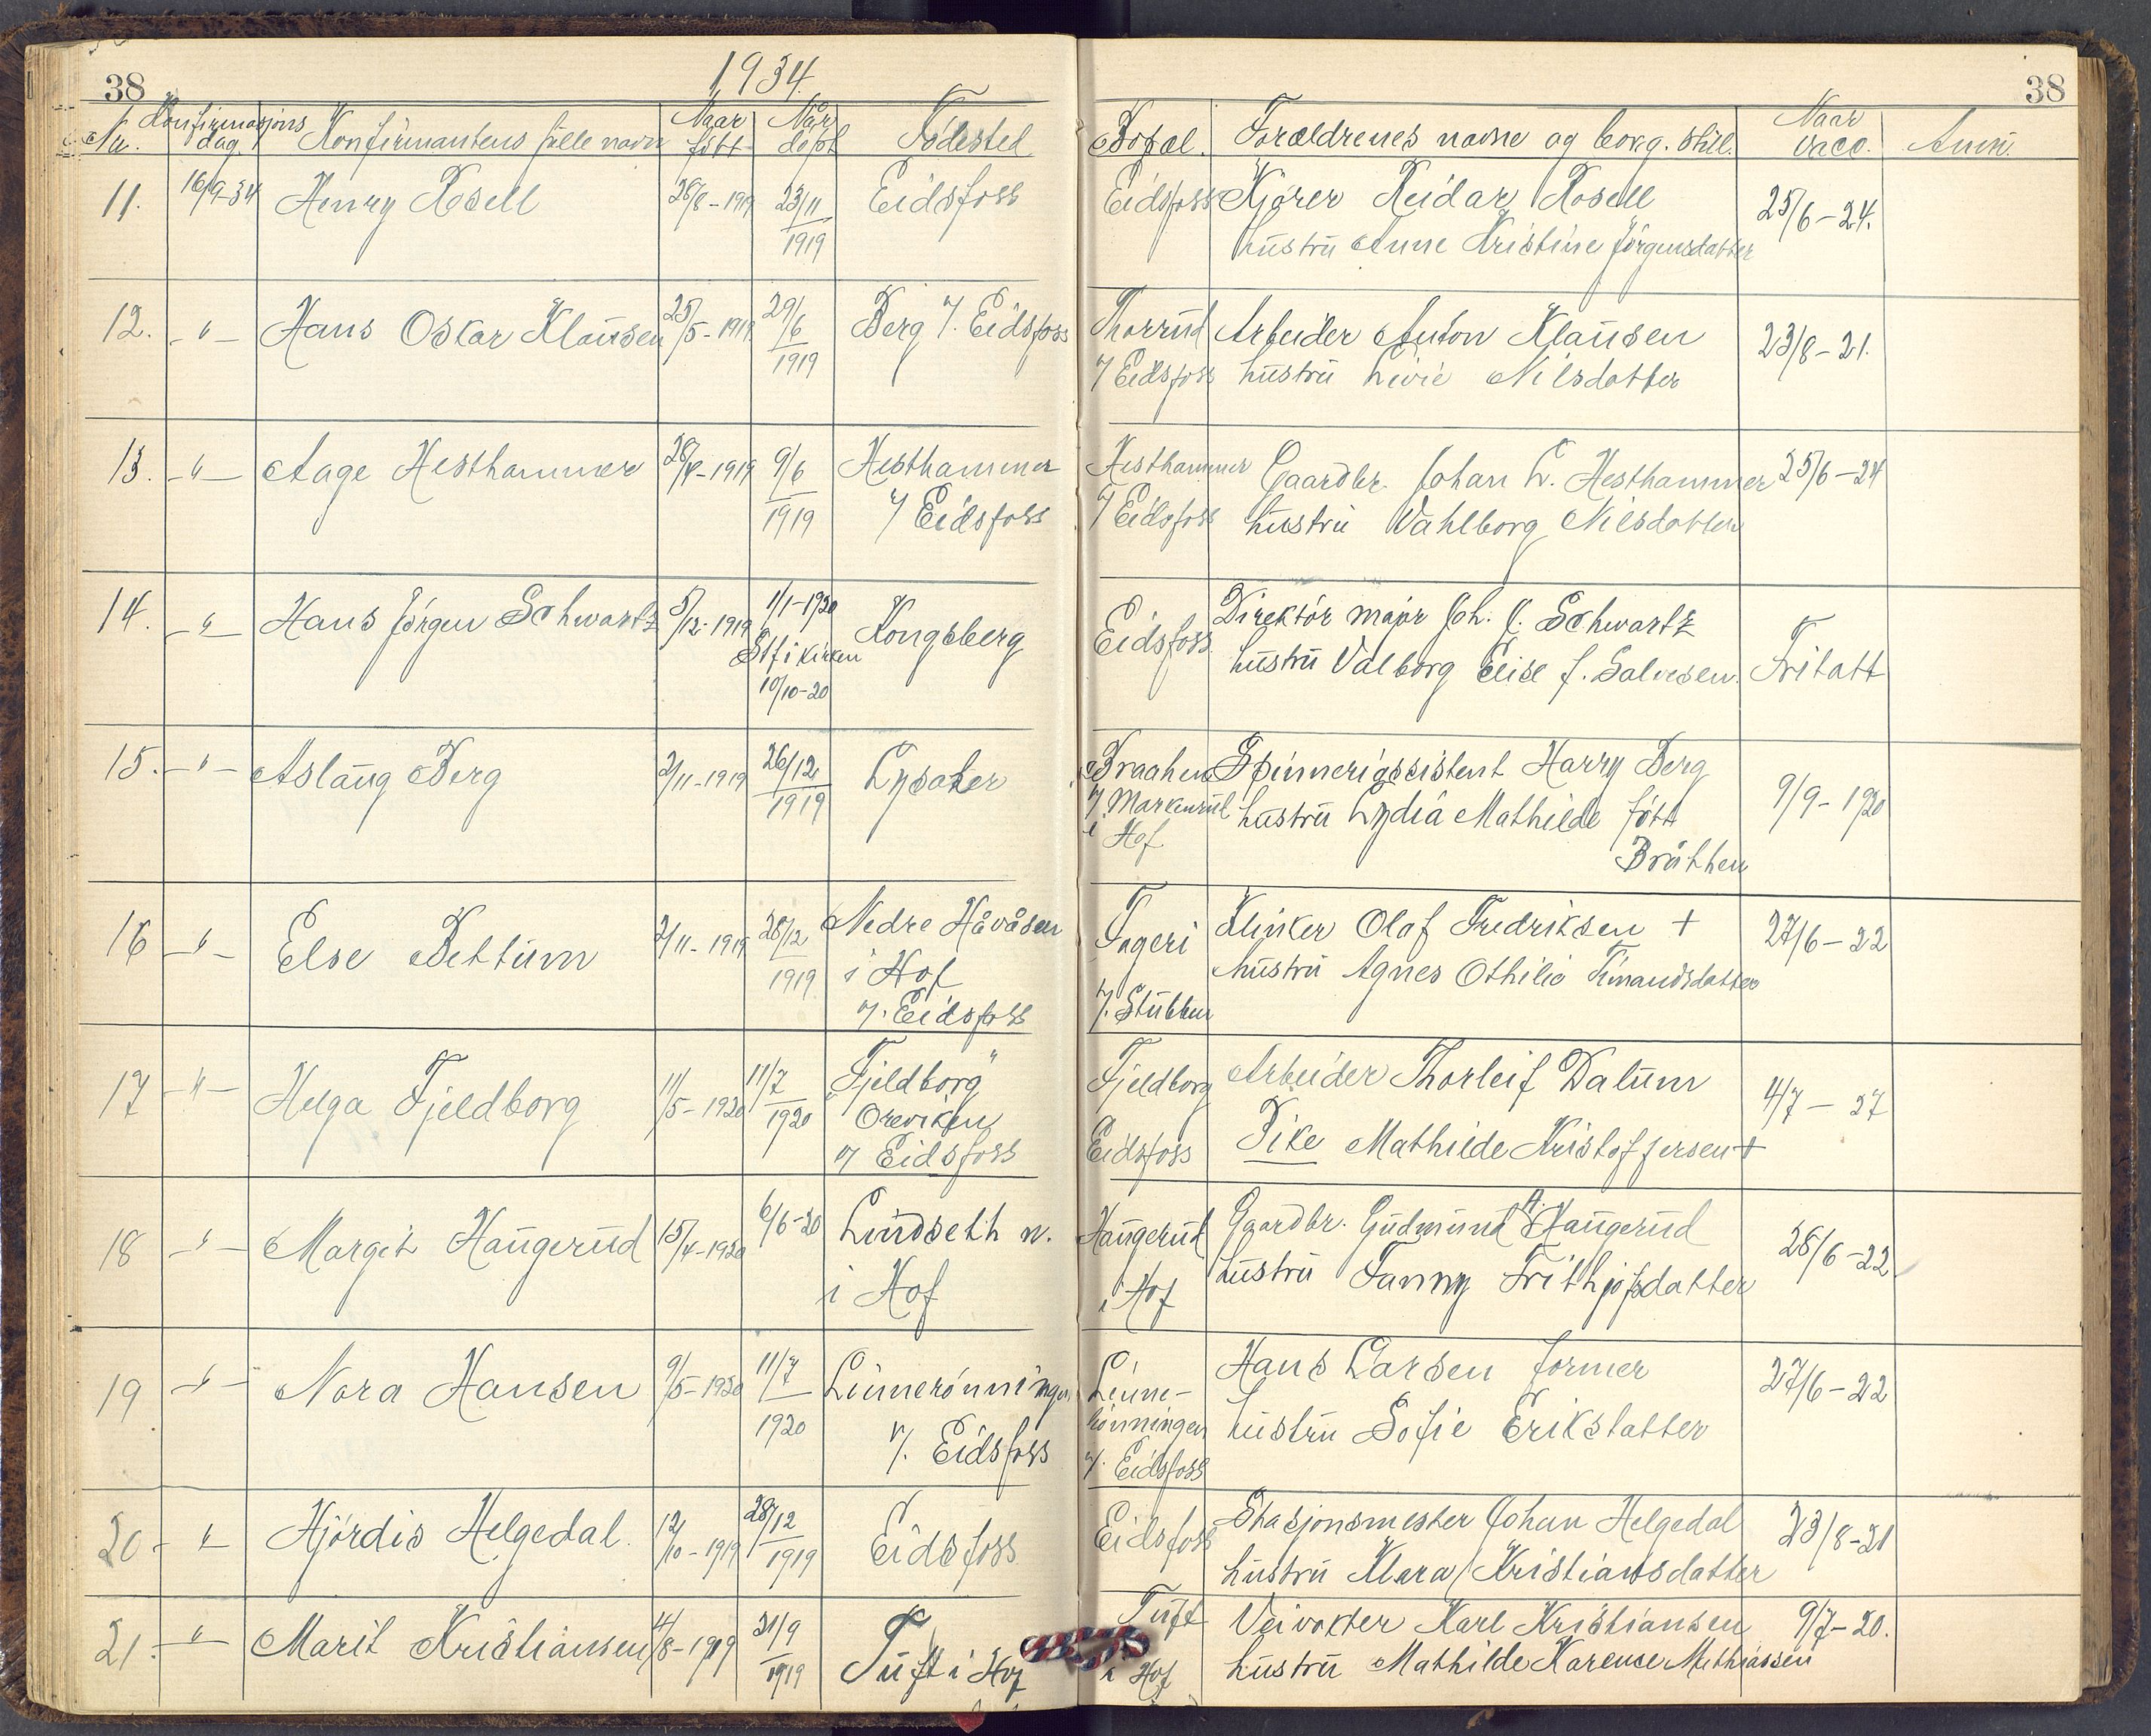 38
1934.
38
Nr. Konfirmasjons dag. Konfirmantens fulle navn Naar født Når døpt Fødested Bopæl. Forældrenes navne og borg. still. Naar vacc. Anm.
11. 16/9-34 Henry Rosell 28/8-1919 23/11 1919 Eidsfoss Eidsfoss Kjører Reidar Rosell 25/6-24.
hustru Anne Kristine Jörgensdatter
12. -"- Hans Oskar Klausen 25/5-1919 29/6 1919 Berg v. Eidsfoss Thorrud Arbeider Anton Klausen 23/8-21.
v Eidsfoss hustru Livie Nilsdatter
13. -"- Aage Hesthammer 28/4-1919 9/6 1919 Hesthammer Hesthammer Gaardbr. Johan L. Hesthammer 25/6-24
v Eidsfoss v Eidsfoss hustru Wahlborg Nilsdatter
14. -"- Hans Jörgen Schwartz 5/12-1919 1/1-1920 Kongsberg Eidsfoss Direktör major Joh. J. Schwartz Fritatt
Stf i kirken hustru Valborg Elise f. Salvesen.
10/10-20
15. -"- Aslaug Berg 2/11-1919 26/12 1919 Lysaker Braahen Spinneriassistent Harry Berg 9/9-1920
v. Markerud hustru Lydia Mathilde fött
i Hof Bråthen
16 -"- Else Bettum 2/11-1919 28/12 1919 Nedre Håvåsen Fageri Klinker Olaf Fredriksen + 27/6-22
i Hof hustru Agnes Othilie
v. Eidsfoss v. Stubben
17 -"- Helga Fjeldborg 11/5-1920 11/7 1920 "Fjeldborg" Fjeldborg Arbeider Thorleif Dalum 4/7-27
Oreviken
v Eidsfoss Eidsfoss Pike Mathilde Kristoffersen +
18 -"- Margit Haugerud 15/4-1920 6/6-20 Lindseth n. Haugerud Gaardbr. Gudmund A. Haugerud 28/6-22
i Hof i Hof hustru Fanny Frithjofsdatter
19 -"- Nora Hansen 9/5-1920 11/7 1920 Linnerönningen Linne- Hans Larsen former 27/6-22
v. Eidsfoss rönningen hustru Sofie Eriksdatter
v. Eidsfoss
20- -"- Hjördis Helgedal. 12/10-1919 28/12 1919 Eidsfoss Eidsfoss Stasjonsmester Johan Helgedal 23/8-21
hustru Klara Kristiansdatter
21. -"- Marit Kristiansen 14/8-1919 21/9 1919 Tuft i Hof Tuft Veivokter Karl Kristiansen 9/7-20.
i Hof hustru Mathilde Karence Mathiassen